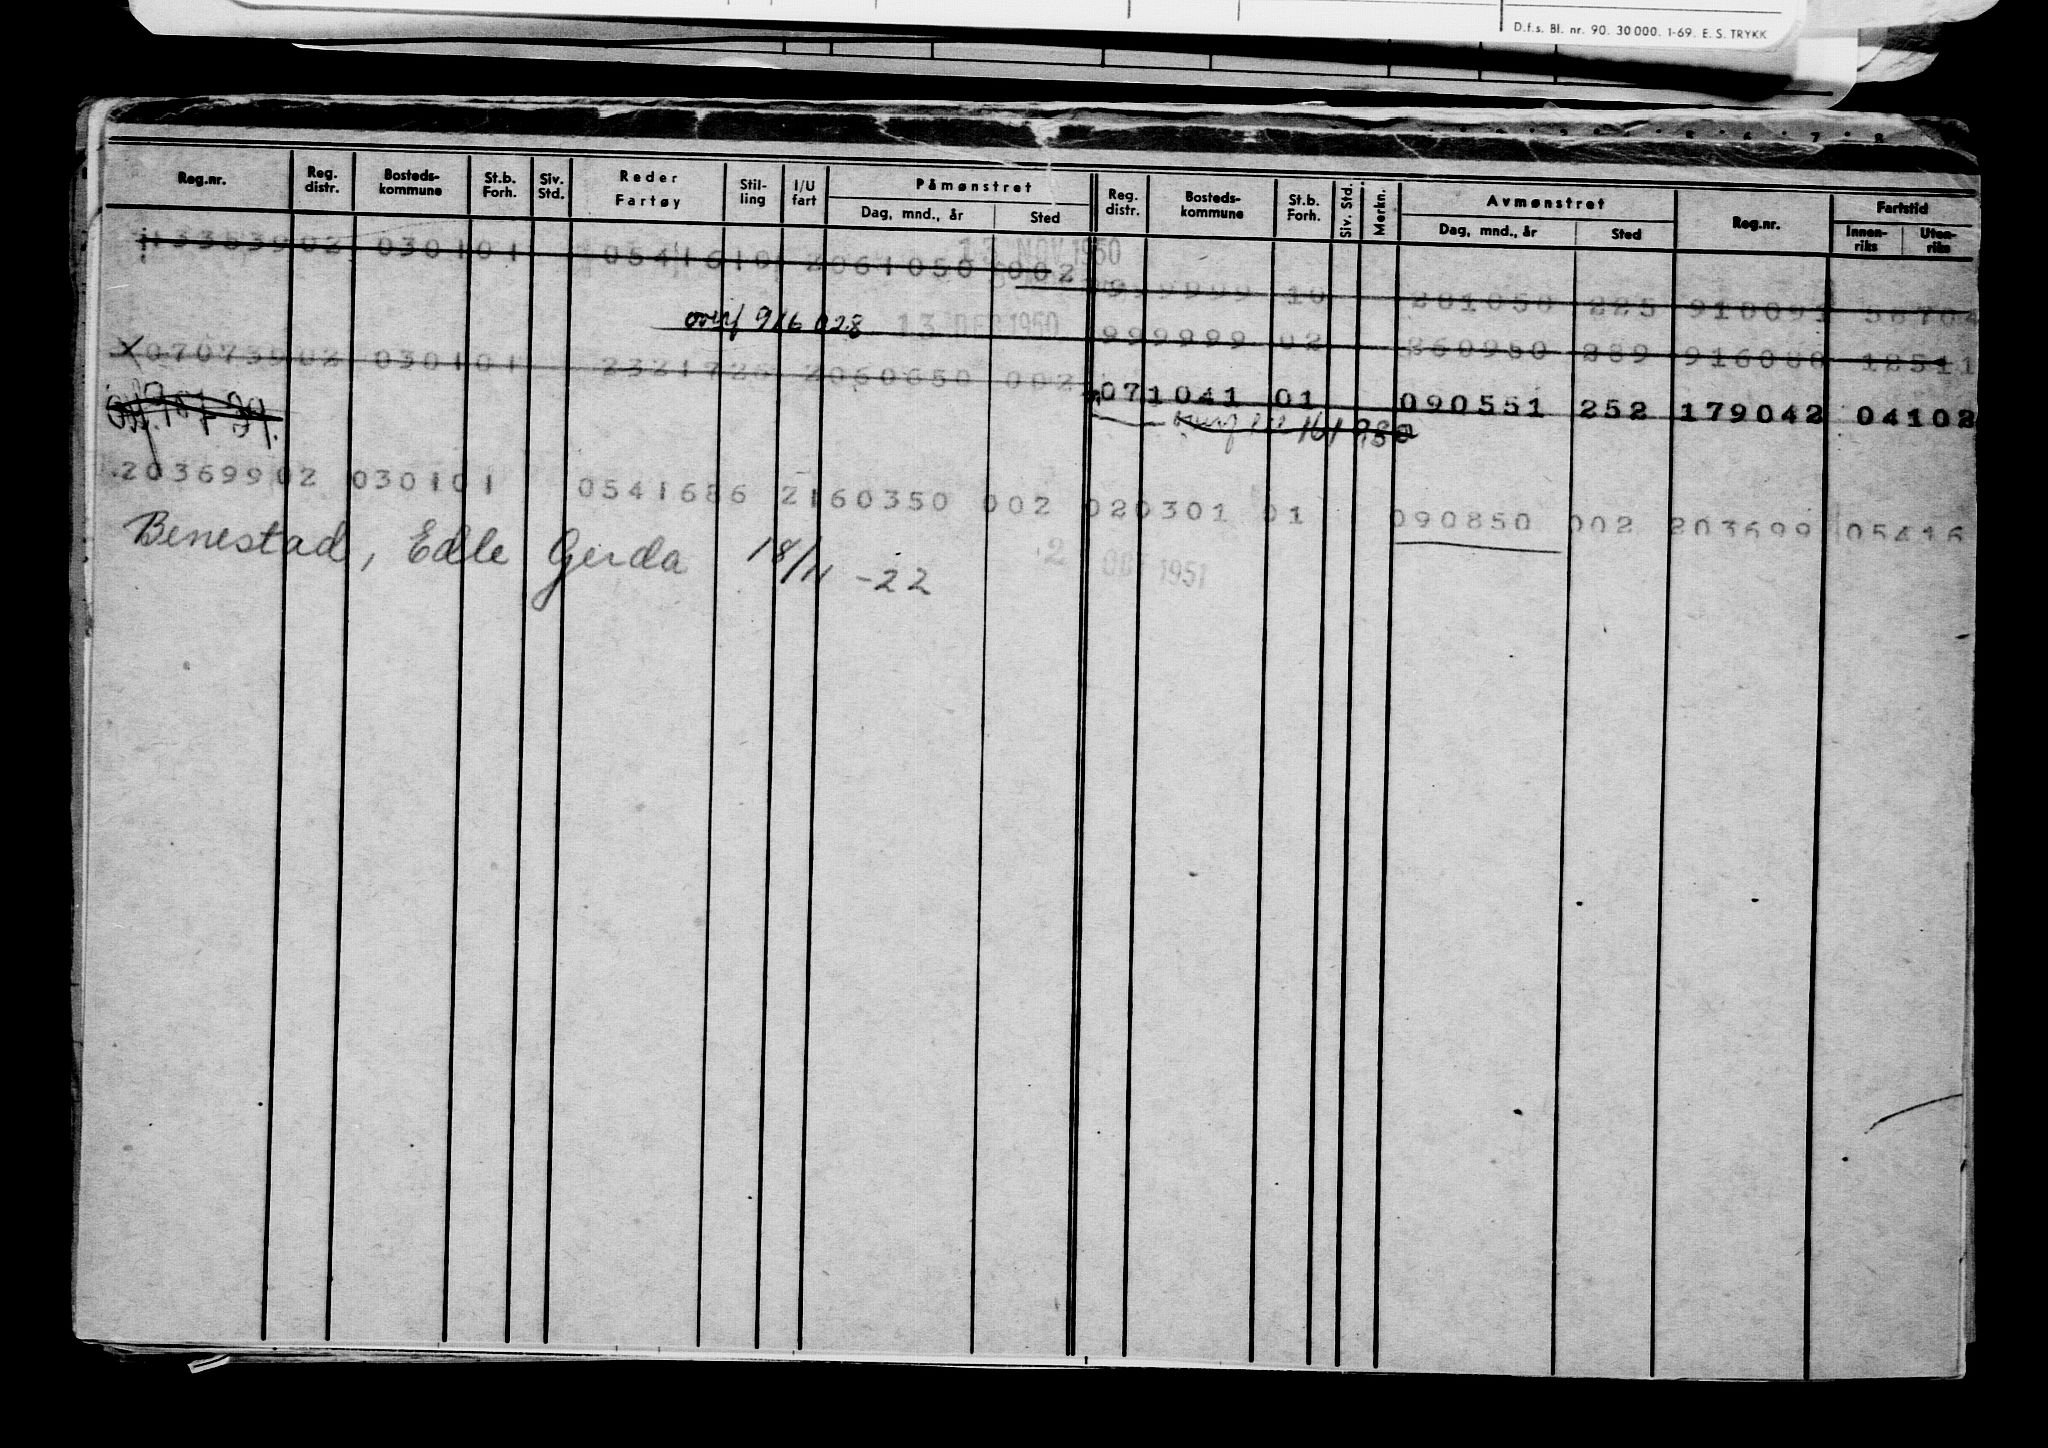 D.f.s. Bl. nr. 90. 30 000. 1-69. E. S. TRYKK
Reg.nr. Reg. distr. Bosteds-kommune St.b. Forh. Siv. Std. Reder Fartøy Stil-ling I/U fart Påmønstret Dag, mnd., år Sted Reg. distr. Bosteds-kommune St.b. Forh. Siv. Std. Merkn. Avmønstret Dag, mnd., år Sted Reg.nr. Fartstid Innen-riks Uten-riks
13 NOV 1950
02 030101 0541610 2061050 002
999999 10 201050 225 910091
916028 13 DEC 1950
999999 02 260950 289 916080 12511
X 0707390 2 030101 2321726 2060650 002
071041 01 090551 252 179042 04102
20369902 030101 0541686 2160350 002 020301 01 090850 002 203699 05416
Benestad, Edle Gerda 18/11 -22
2 OCT 1951